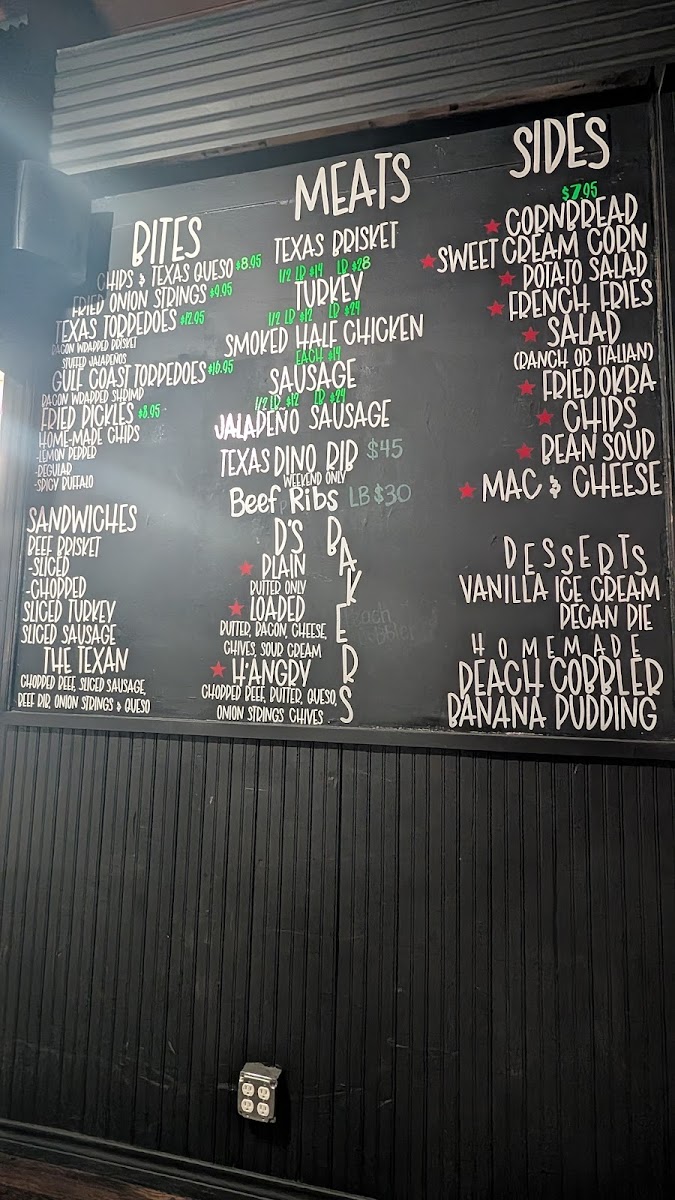 BITES
CHIPS & TEXAS QUESO $8.95
FRIED ONION STRINGS $9.95
TEXAS TORPEDOES $12.95
BACON WRAPPED BRISKET
STUFFED JALAPEÑOS
GULF COAST TORPEDOES $16.95
BACON WRAPPED SHRIMP
FRIED PICKLES $8.95
HOME-MADE CHIPS
-LEMON PEPPER
-REGULAR
-SPICY BUFFALO
SANDWICHES
BEEF BRISKET
-SLICED
-CHOPPED
SLICED TURKEY
SLICED SAUSAGE
THE TEXAN
CHOPPED BEEF, SLICED SAUSAGE,
BEEF RIB, ONION STRINGS & QUESO
MEATS
TEXAS BRISKET
1/2 LB $14 LB $28
TURKEY
1/2 LB $12 LB $24
SMOKED HALF CHICKEN
EACH $14
SAUSAGE
1/2 LB $12 LB $24
JALAPEÑO SAUSAGE
TEXAS DINO RIB $45
WEEKEND ONLY
Beef Ribs LB $30
D'S BAKERS
PLAIN
BUTTER ONLY
LOADED
BUTTER, BACON, CHEESE,
CHIVES, SOUR CREAM
H'ANGRY
CHOPPED BEEF, BUTTER, QUESO,
ONION STRINGS CHIVES
SIDES
$7.95
CORNBREAD
SWEET CREAM CORN
POTATO SALAD
FRENCH FRIES
SALAD
(RANCH OR ITALIAN)
FRIED OKRA
CHIPS
BEAN SOUP
MAC & CHEESE
DESSERTS
VANILLA ICE CREAM
PECAN PIE
HOMEMADE
PEACH COBBLER
BANANA PUDDING